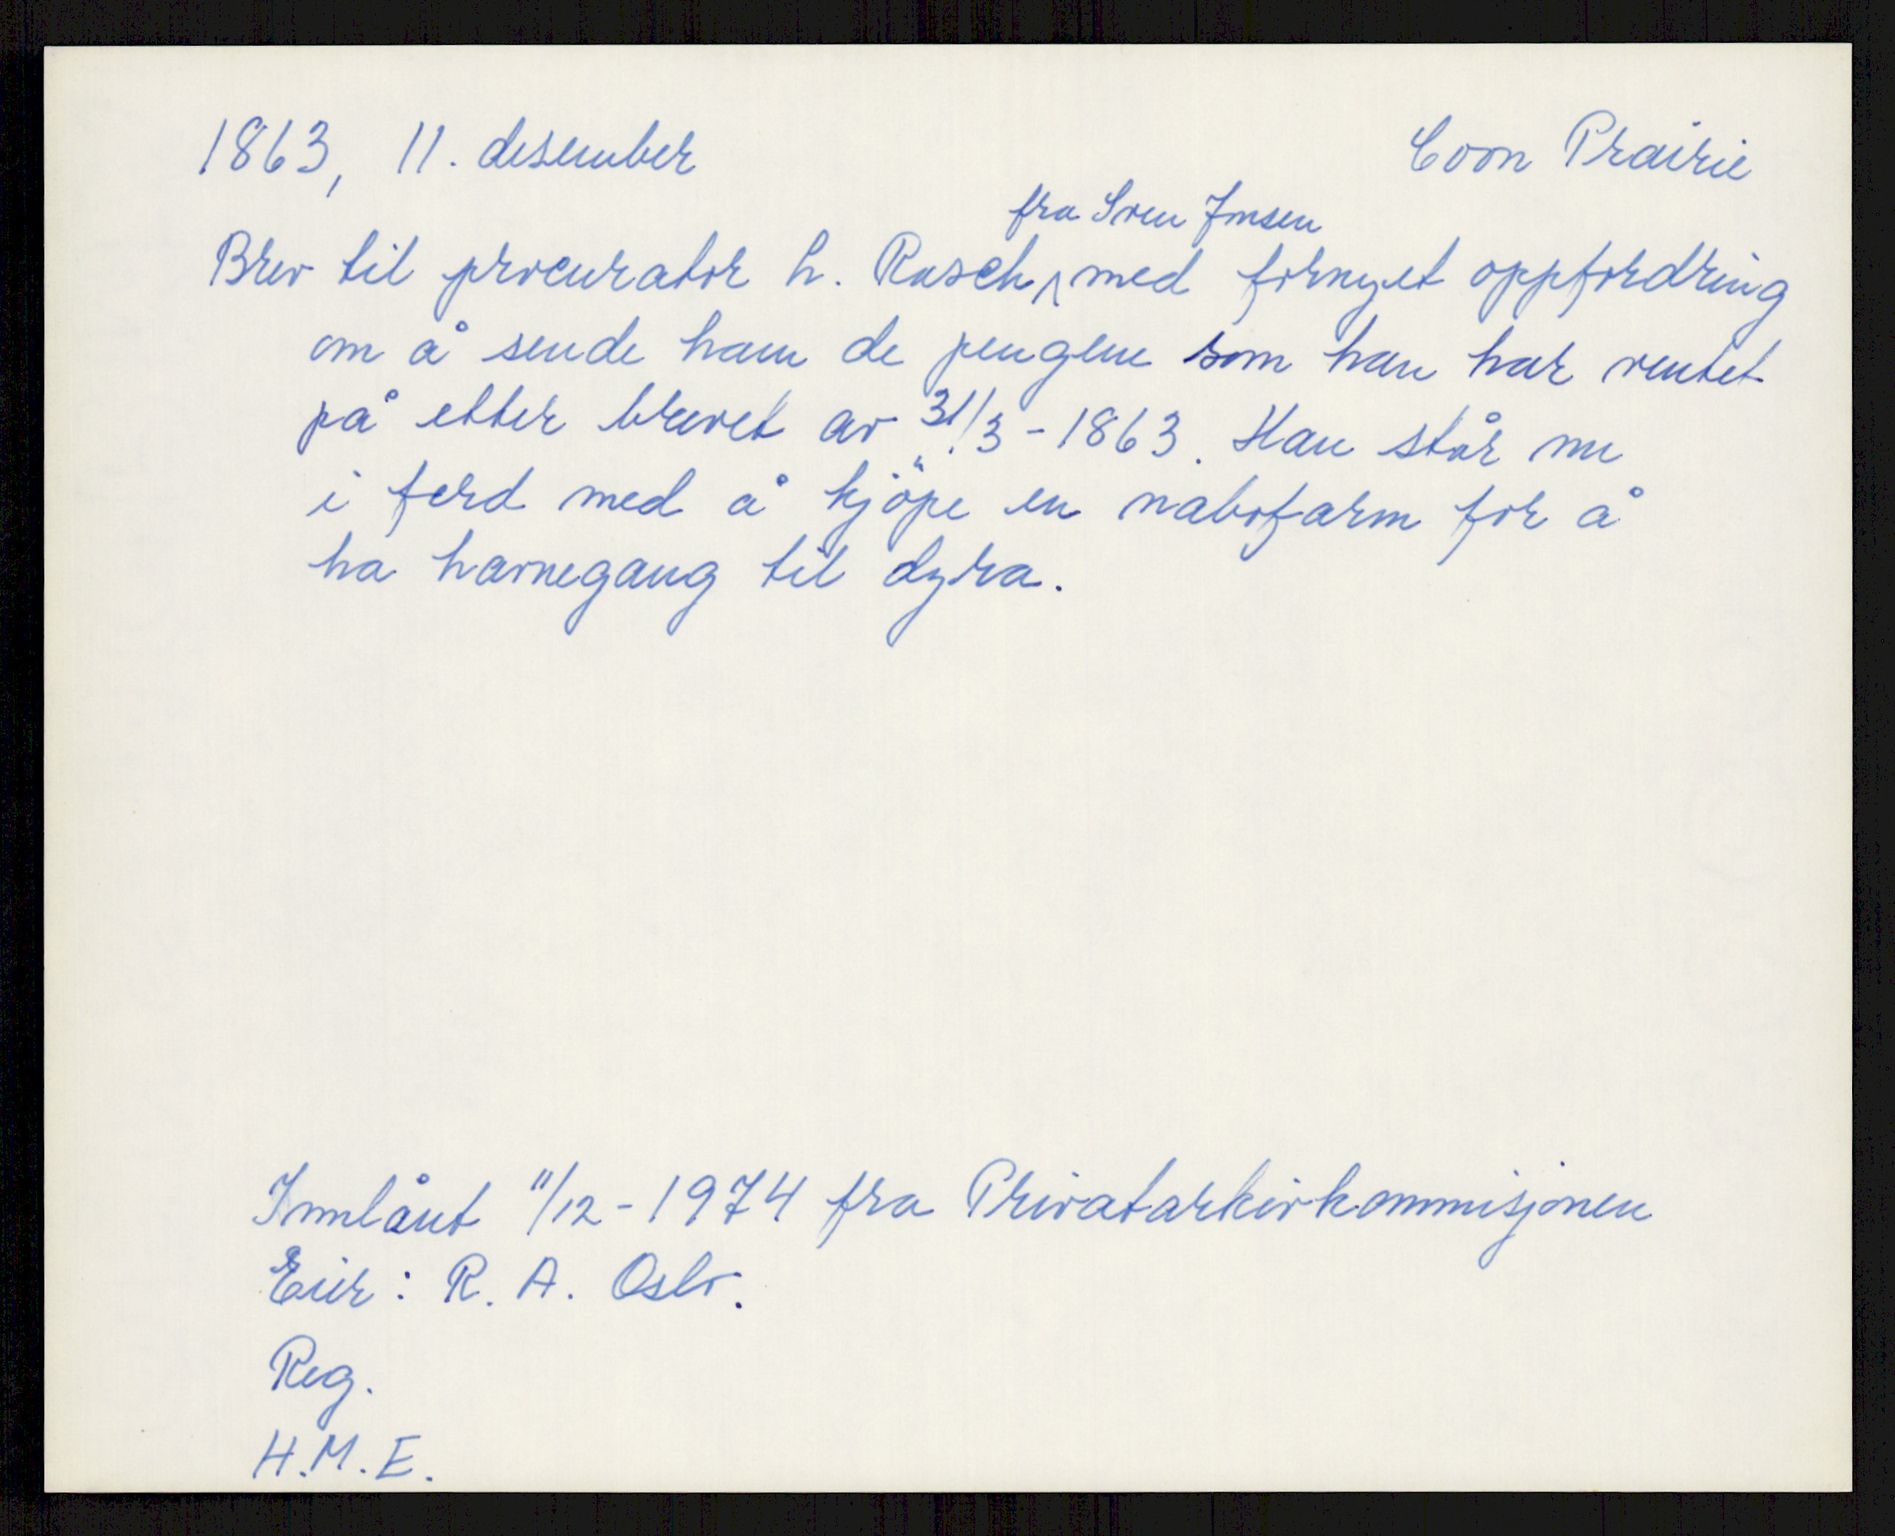 1863, 11. desember Coon Prairie
fra Sven Jonsen
Brev til procurator L. Rasch, med fornyet oppfordring
om å sende ham de pengene som han har ventet
på etter brevet av 31/3-1863. Han står nu
i ferd med å kjöpe en nabofarm for å
ha havnegang til dyra.
Innlånt 11/12-1974 fra Privatarkivkommisjonen
Eier: R. A. Oslo.
Reg.
H.M.E.